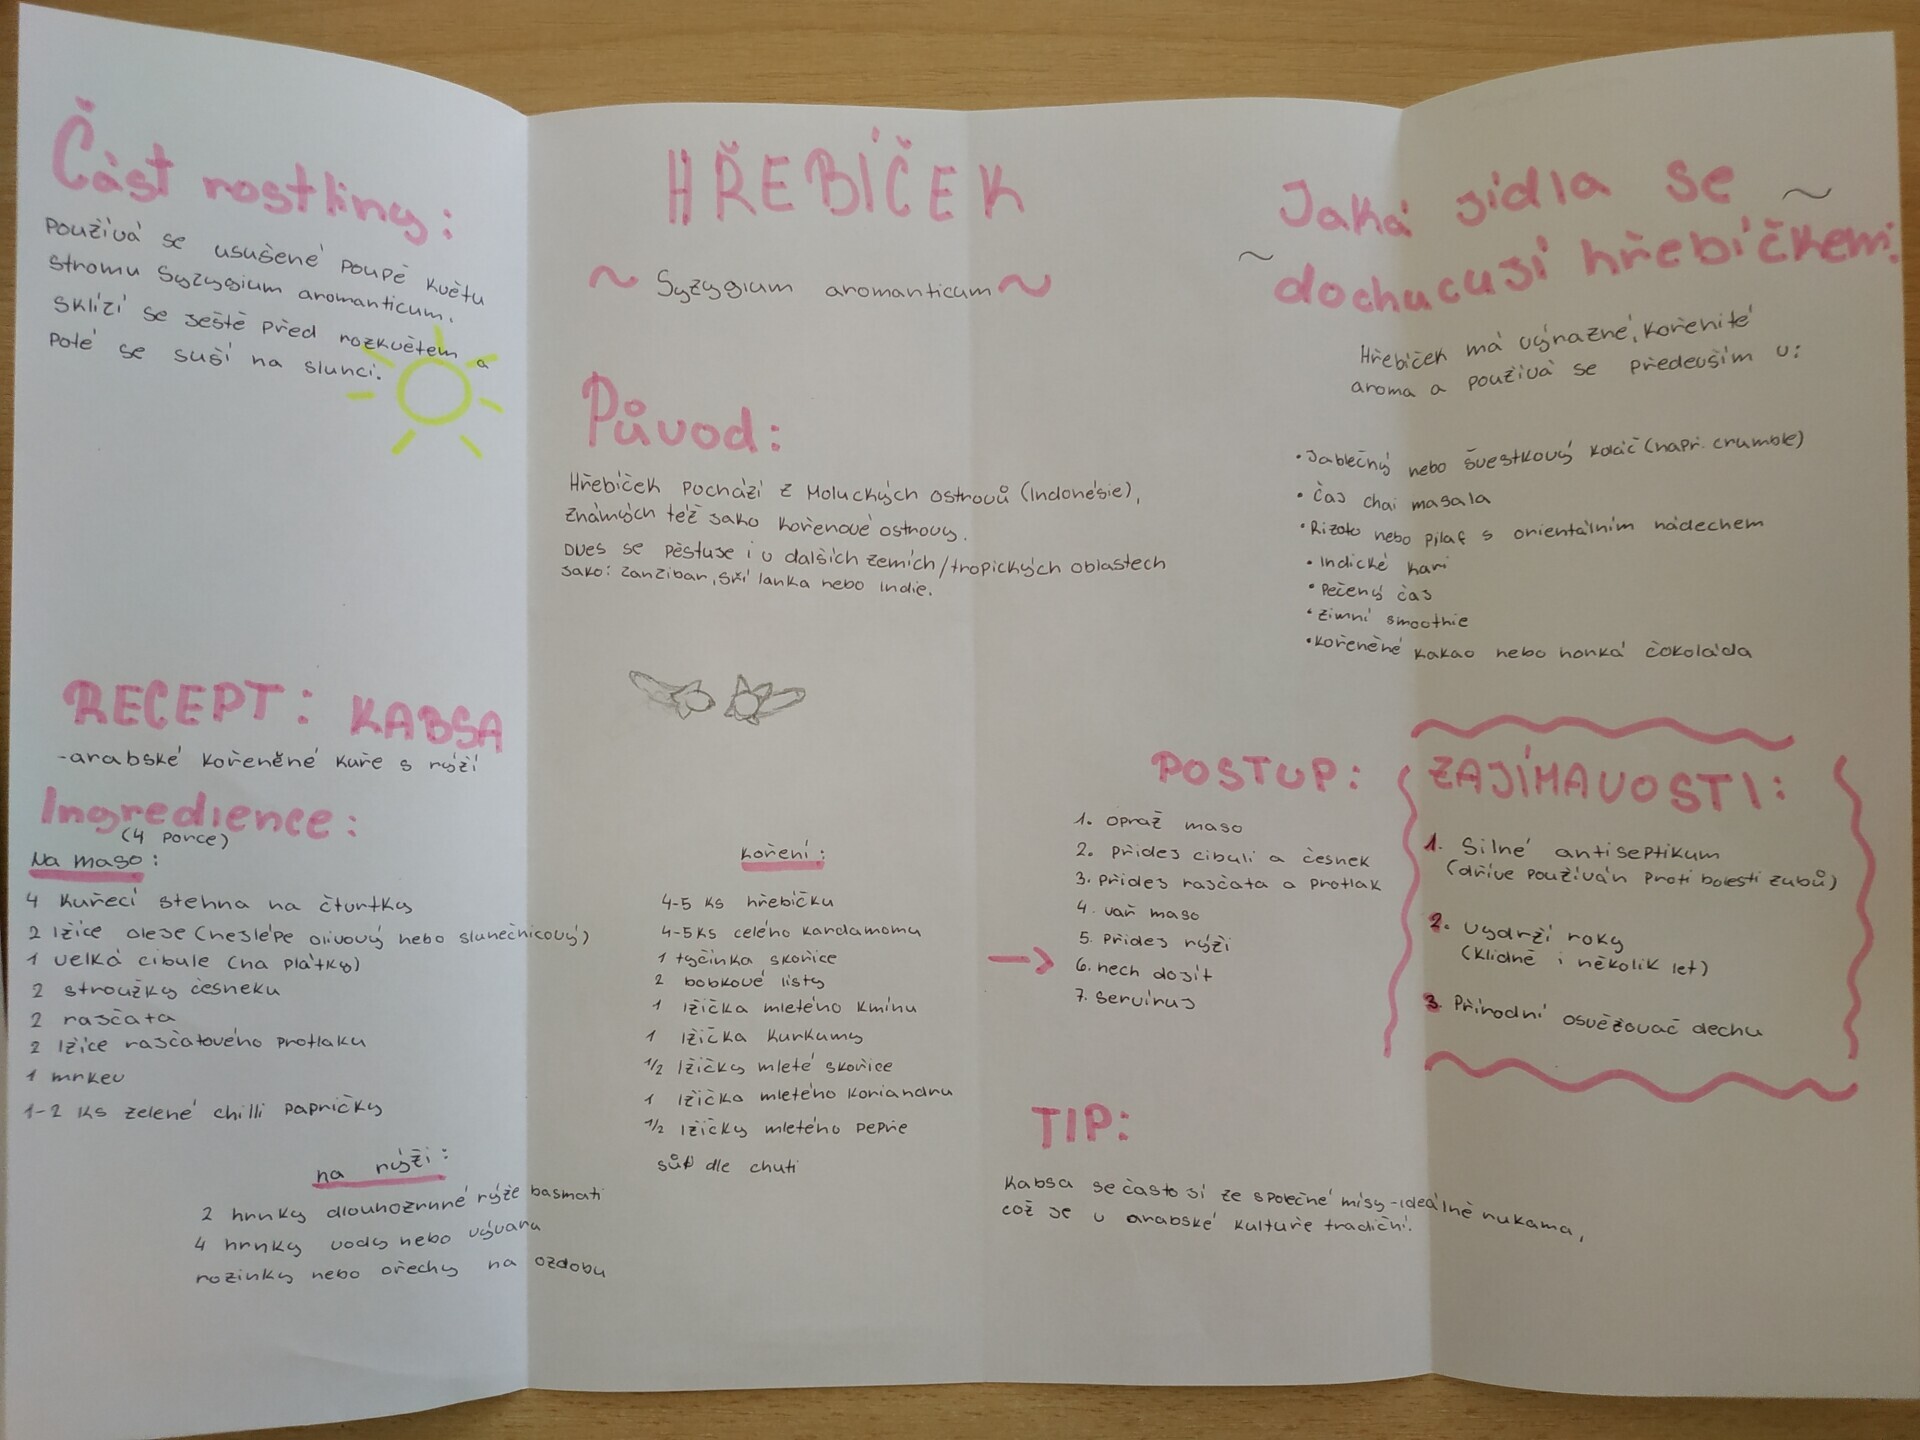 Část rostliny:
Používá se usušené poupě květu
stromu Syzygium aromanticum.
Sklízí se ještě před rozkvětem a
poté se suší na slunci.
HŘEBÍČEK
~ Syzygium aromanticum ~
Původ:
Hřebíček pochází z Moluckých ostrovů (Indonésie),
známých též jako kořenové ostrovy.
Dnes se pěstuje i v dalších zemích/tropických oblastech
jako: Zanzibar, Srí lanka nebo Indie.
Jaká jídla se ~
~ dochucují hřebíčkem:
Hřebíček má výrazné, kořenité
aroma a používá se především v:
• Jablečný nebo švestkový koláč (např. crumble)
• Čaj chai masala
• Rizoto nebo pilaf s orientálním nádechem
• Indické kari
• Pečený čaj
• Zimní smoothie
• Kořeněné kakao nebo horká čokoláda
RECEPT: KABSA
-arabské kořeněné kuře s rýží
Ingredience:
(4 porce)
Na maso:
4 kuřecí stehna na čtvrtky
2 lžíce oleje (nejlépe olivový nebo slunečnicový)
1 velká cibule (na plátky)
2 stroužky česneku
2 rajčata
2 lžíce rajčatového protlaku
1 mrkev
1-2 ks zelené chilli papričky
na rýži:
2 hrnky dlouhozrnné rýže basmati
4 hrnky vody nebo vývaru
rozinky nebo ořechy na ozdobu
koření:
4-5 ks hřebíčku
4-5 ks celého kardamomu
1 tyčinka skořice
2 bobkové listy
1 lžička mletého kmínu
1 lžička kurkumy
1/2 lžičky mleté skořice
1 lžička mletého koriandru
1/2 lžičky mletého pepře
sůl dle chuti
POSTUP:
1. opraž maso
2. přidej cibuli a česnek
3. přidej rajčata a protlak
4. vař maso
5. přidej rýži
6. nech dojít
7. servíruj
TIP:
Kabsa se často jí ze společné mísy -ideálně rukama,
což je v arabské kultuře tradiční.
ZAJÍMAVOSTI:
1. Silné antiseptikum
(dříve používán proti bolesti zubů)
2. Vydrží roky
(klidně i několik let)
3. Přírodní osvěžovač dechu